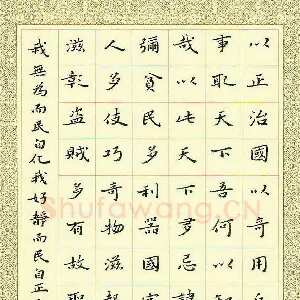 以正治國以奇用兵
事取天下吾何以
哉以此天下多忌諱
彌貧民多利器國家
人多伎巧奇物滋起
滋彰盜賊多有故聖
我無為而民自化我好靜而民自正
Shufawang.CN